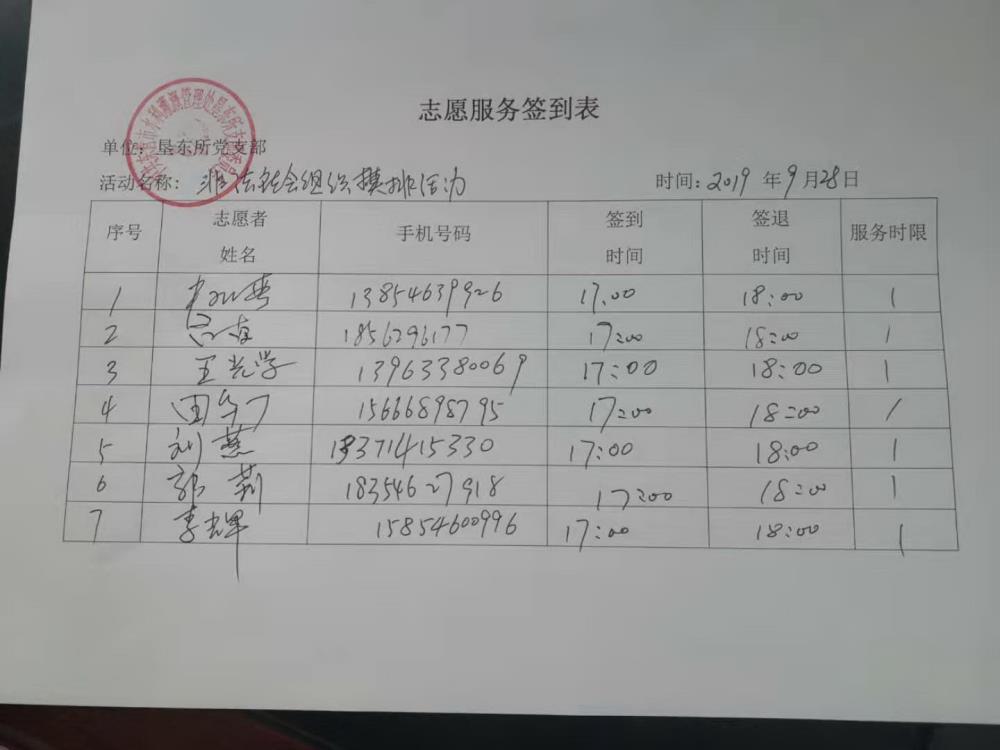 志愿服务签到表
单位：垦东所党支部
活动名称：非法社会组织摸排活动 时间：2019年9月28日
序号 志愿者姓名 手机号码 签到时间 签退时间 服务时限
1 13854639926 17:00 18:00 1
2 1856296177 17:00 18:00 1
3 王光学 13963380069 17:00 18:00 1
4 15666898795 17:00 18:00 1
5 刘燕 13371415330 17:00 18:00 1
6 郭莉 18354627918 17:00 18:00 1
7 李光军 15854600996 17:00 18:00 1